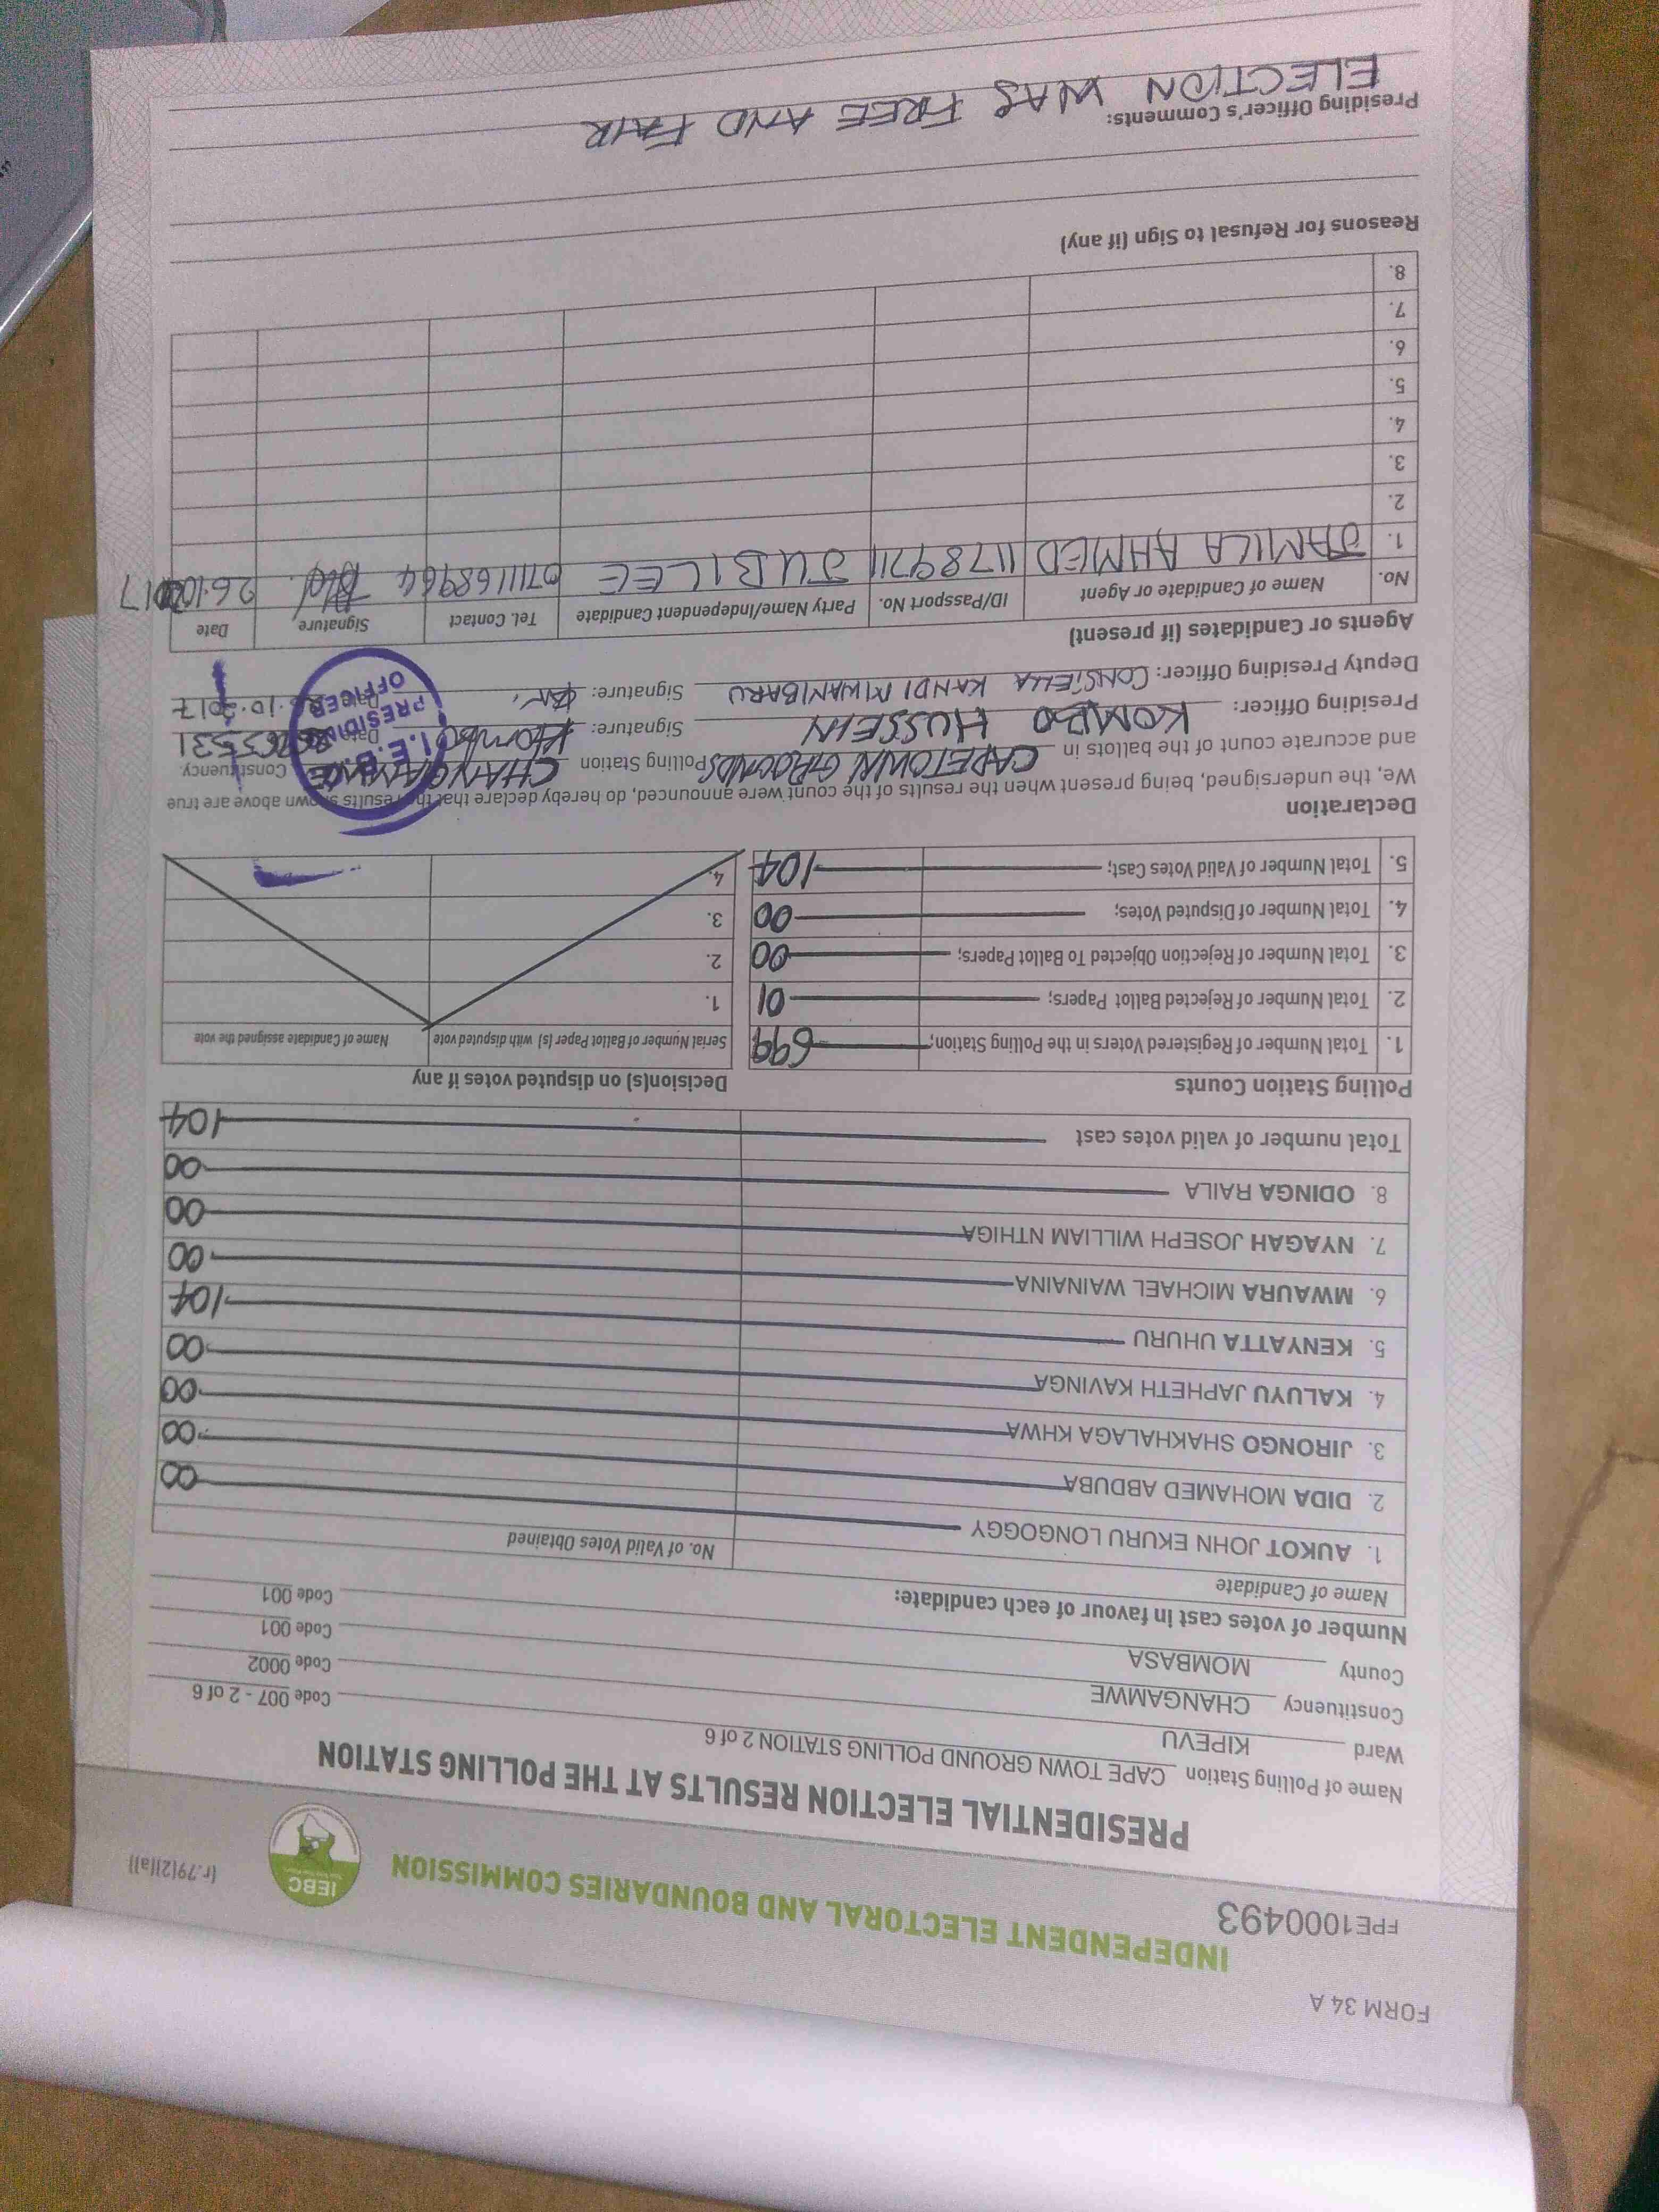 FORM 34 A
INDEPENDENT ELECTORAL AND BOUNDARIES COMMISSION
FPE1000493
IEBC
(r.79(2)(a))
PRESIDENTIAL ELECTION RESULTS AT THE POLLING STATION
Name of Polling Station CAPE TOWN GROUND POLLING STATION 2 of 6 Code 007 - 2 of 6
Ward KIPEVU Code 0002
Constituency CHANGAMWE Code 001
County MOMBASA Code 001
Number of votes cast in favour of each candidate:
Name of Candidate No. of Valid Votes Obtained
1. AUKOT JOHN EKURU LONGOGGY 00
2. DIDA MOHAMED ABDUBA 00
3. JIRONGO SHAKHALAGA KHWA 00
4. KALUYU JAPHETH KAVINGA 00
5. KENYATTA UHURU 104
6. MWAURA MICHAEL WAINAINA 00
7. NYAGAH JOSEPH WILLIAM NTHIGA 00
8. ODINGA RAILA 00
Total number of valid votes cast 104
Polling Station Counts
1. Total Number of Registered Voters in the Polling Station; 699
2. Total Number of Rejected Ballot Papers; 01
3. Total Number of Rejection Objected To Ballot Papers; 00
4. Total Number of Disputed Votes; 00
5. Total Number of Valid Votes Cast; 104
Decision(s) on disputed votes if any
Serial Number of Ballot Paper (s) with disputed vote Name of Candidate assigned the vote
1.
2.
3.
4.
Declaration
We, the undersigned, being present when the results of the count were announced, do hereby declare that the results shown above are true
and accurate count of the ballots in CAPETOWN GROUNDS Polling Station CHANGAMWE Constituency.
Presiding Officer: KOMBO HUSSEIN Signature: Kombo Date
Deputy Presiding Officer: CONSTELLA KANDI MWANIBARU Signature: Date 26.10.2017
I.E.B.C
PRESIDING
OFFICER
Agents or Candidates (if present)
No. Name of Candidate or Agent ID/Passport No. Party Name/Independent Candidate Tel. Contact Signature Date
1. JAMILA AHMED 11789711 JUBILEE 0711168964 26.10.2017
2.
3.
4.
5.
6.
7.
8.
Reasons for Refusal to Sign (if any)
Presiding Officer's Comments:
ELECTION WAS FREE AND FAIR